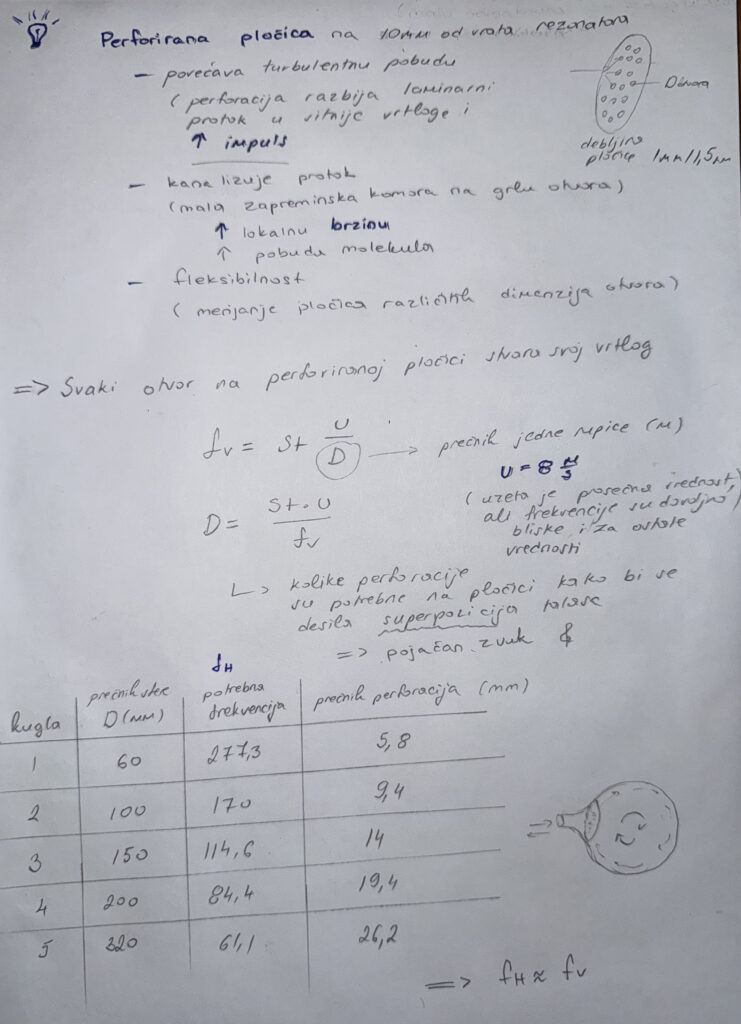 Perforirana pločica na 10mm od vrata rezonatora
- povećava turbulentnu pobudu
(perforacija razbija laminarni
protok u sitnije vrtloge i
↑ impuls
- kanalizuje protok
(mala zapreminska komora na grlu otvora)
↑ lokalnu brzinu
↑ pobudu molekula
- fleksibilnost
(menjanje pločica različitih dimenzija otvora)
otvora
debljina
pločice 1mm/1,5mm
=> Svaki otvor na perforiranoj pločici stvara svoj vrtlog
fv = St U/D → prečnik jedne rupice (m)
U = 8 m/s
(uzeta je prosečna vrednost,
ali frekvencije su dovoljno
bliske i za ostale
vrednosti
D = St·U/fv
↳ kolike perforacije
su potrebne na pločici kako bi se
desila superpozicija talasa
=> pojačan zvuk
fH
kugla | prečnik D (mm) | potrebna frekvencija | prečnik perforacija (mm)
1 | 60 | 277,3 | 5,8
2 | 100 | 170 | 9,4
3 | 150 | 114,6 | 14
4 | 200 | 84,4 | 19,4
5 | 320 | 61,1 | 26,2
=> fH ≈ fv